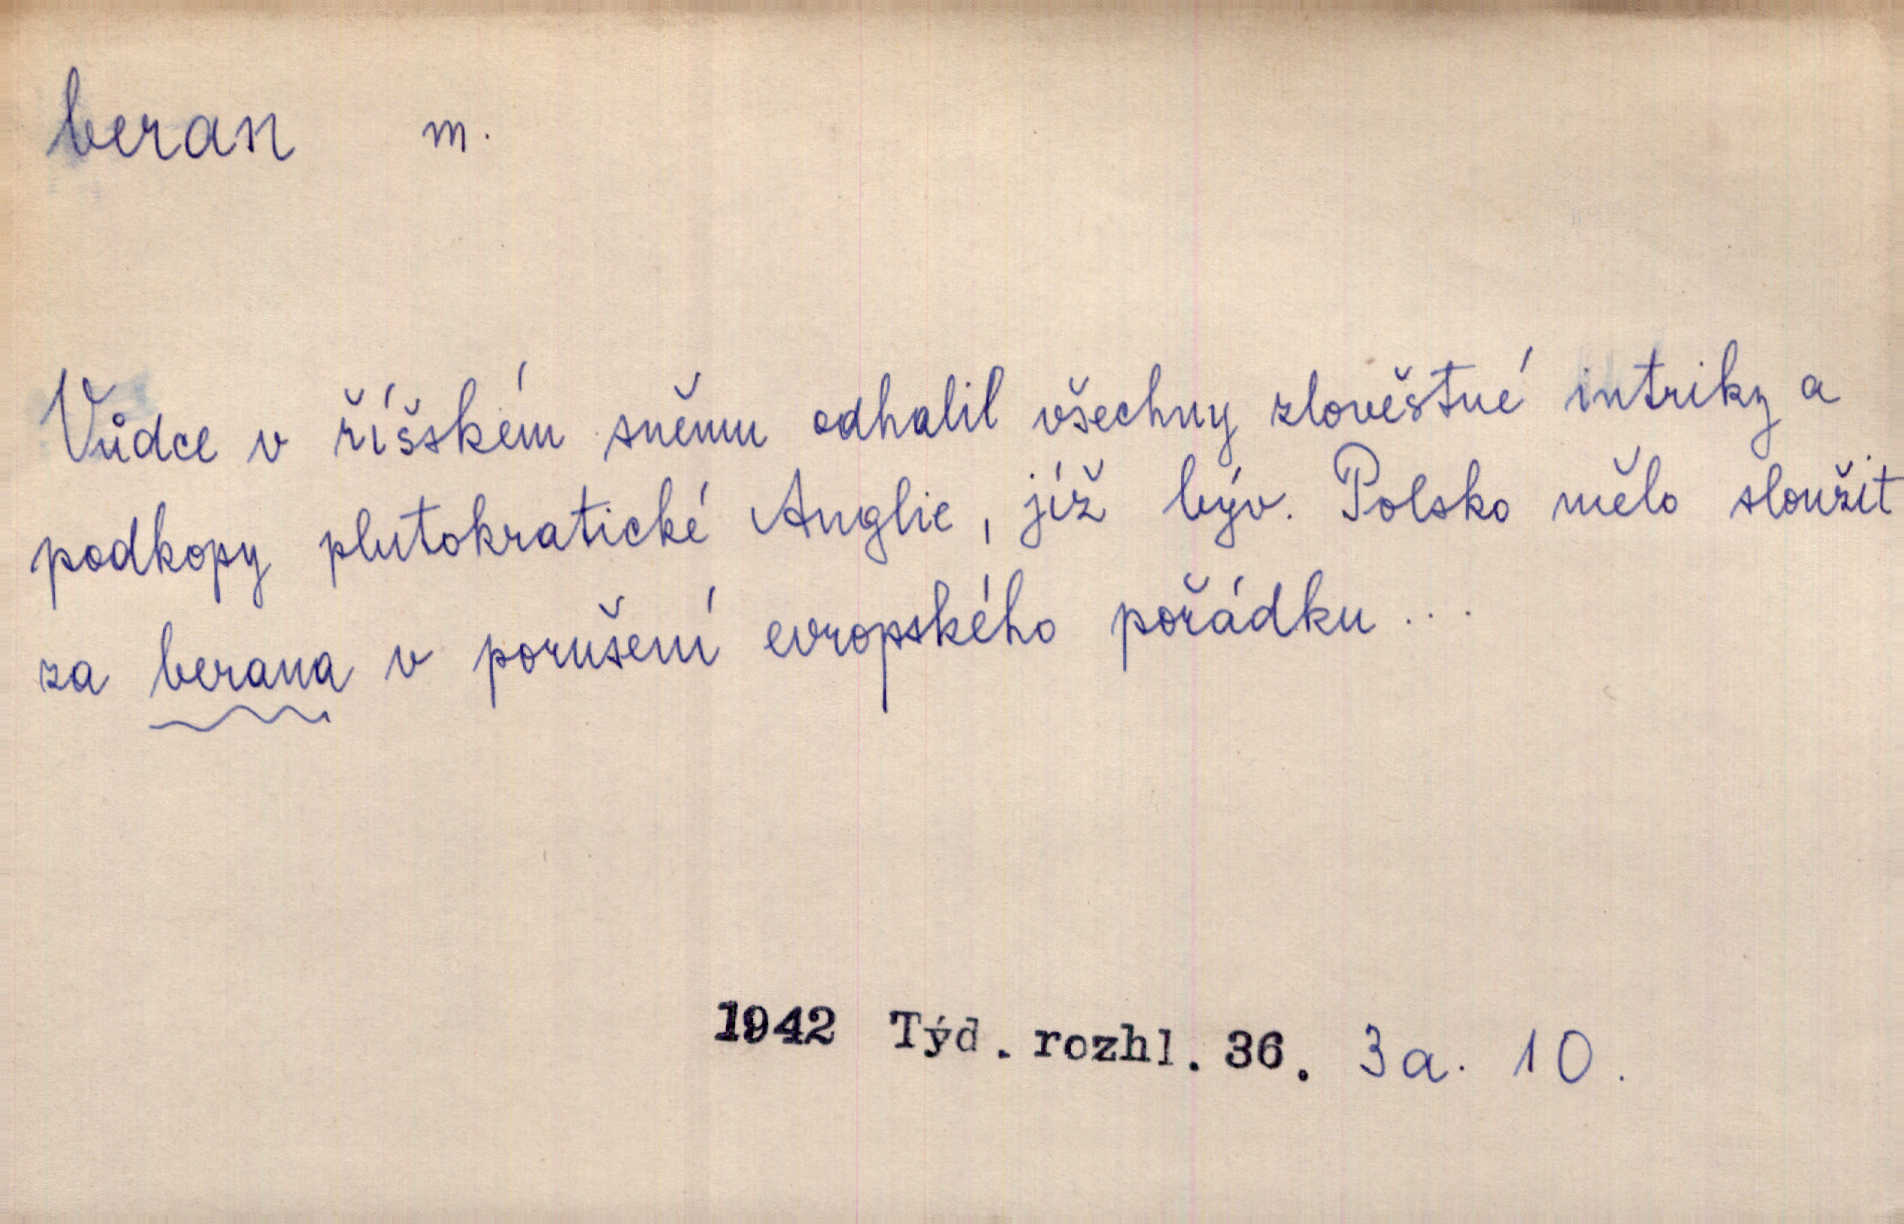 beran m.
Vůdce v říšském sněmu odhalil všechny zlověstné intriky a
podkopy plutokratické Anglie, jíž býv. Polsko mělo sloužit
za berana v porušení evropského pořádku ...
1942 Týd. rozhl. 36. 3a. 10.